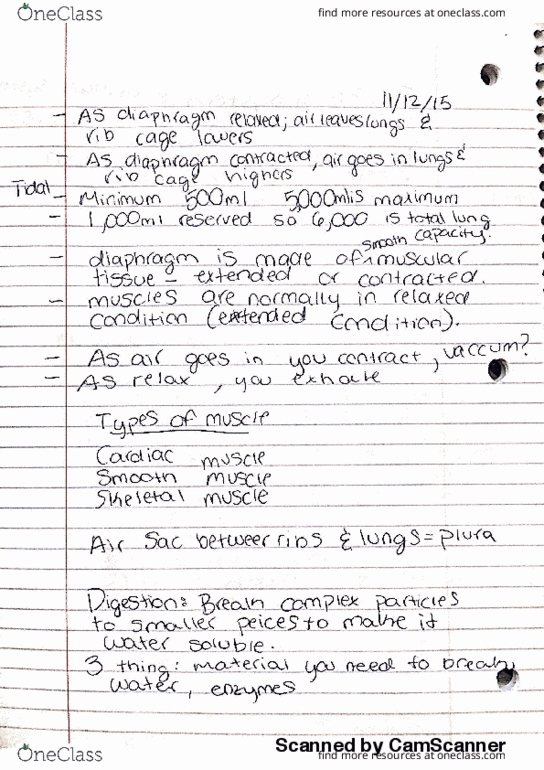 OneClass find more resources at oneclass.com
11/12/15
- As diaphragm relaxed; air leaves lungs &
rib cage lowers
- As diaphragm contracted, air goes in lungs &
rib cage highers
Tidal - Minimum 500ml 5,000mlis maximum
- 1,000ml reserved so 6,000 is total lung
capacity.
- diaphragm is made of ^ smooth muscular
tissue - extended or contracted.
- muscles are normally in relaxed
condition (extended condition).
- As air goes in you contract, vaccum?
- As relax, you exhale
Types of muscle
Cardiac muscle
Smooth muscle
Skeletal muscle
Air Sac between ribs & lungs = plura
Digestion: Break complex particles
to smaller peices to make it
water soluble.
3 thing: material you need to break,
water, enzymes
Scanned by CamScanner
OneClass find more resources at oneclass.com